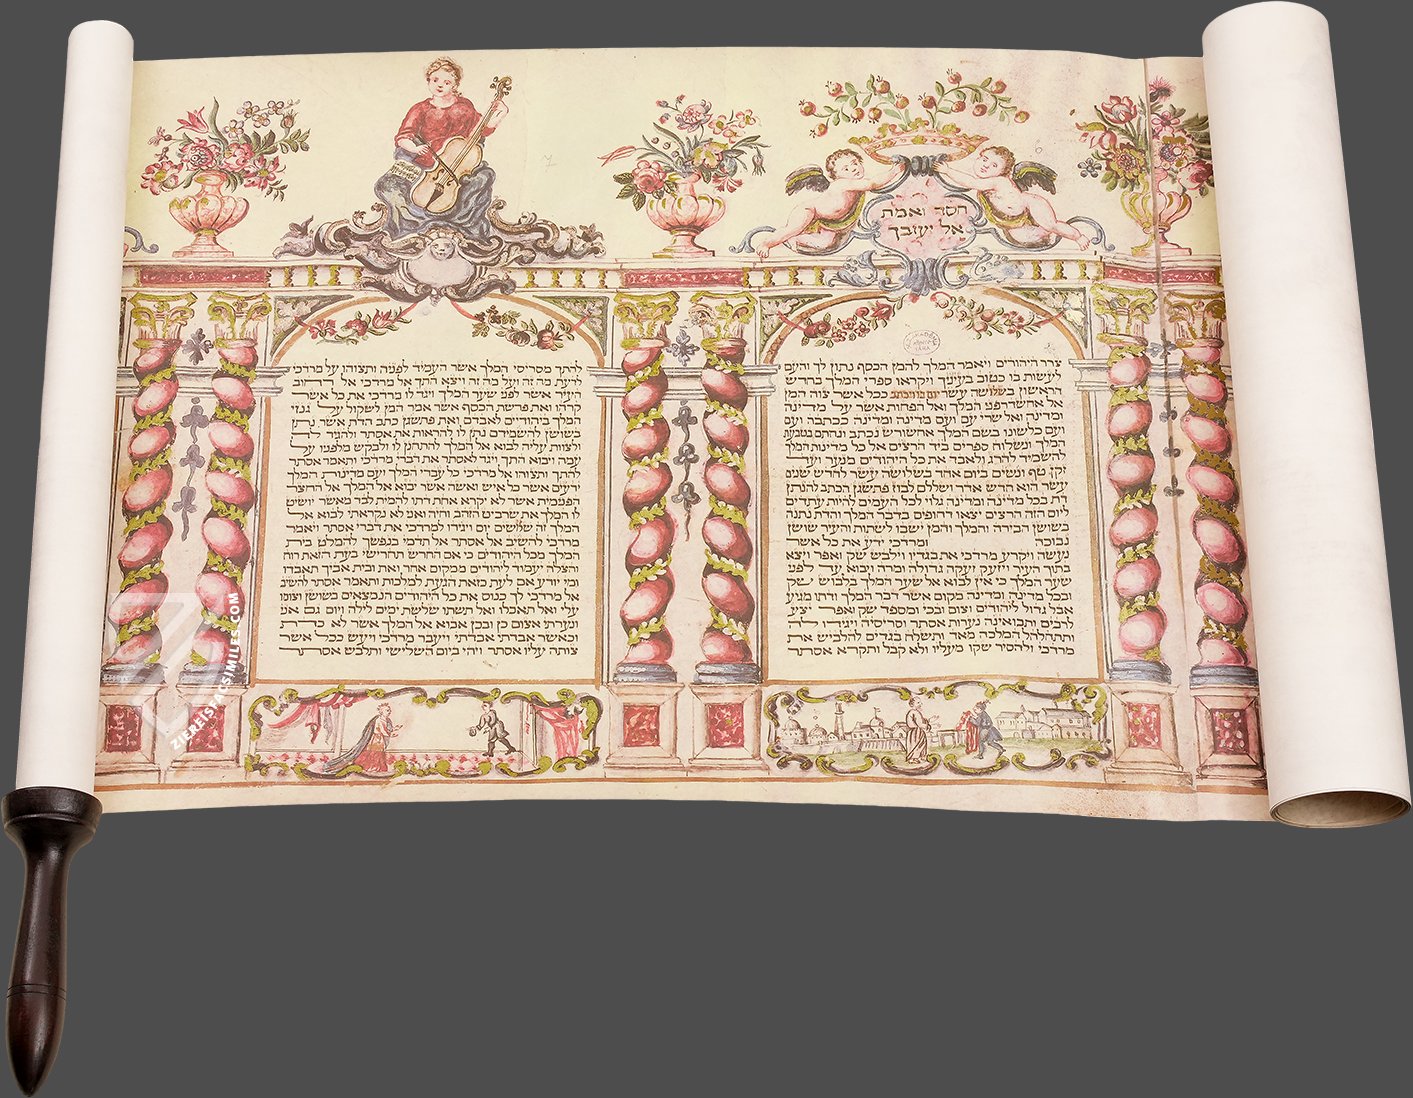 חסד ואמת
אל יעזבך
צרר היהודים ויאמר המלך להמן הכסף נתון לך והעם
לעשות בו כטוב בעיניך ויקראו ספרי המלך בחדש
הראשון בשלושה עשר יום בו ויכתב ככל אשר צוה המן
אל אחשדרפני המלך ואל הפחות אשר על מדינה
ומדינה ואל שרי עם ועם מדינה ומדינה ככתבה ועם
ועם כלשונו בשם המלך אחשורש נכתב ונחתם בטבעת
המלך ונשלוח ספרים ביד הרצים אל כל מדינות המלך
להשמיד להרג ולאבד את כל היהודים מנער ועד
זקן טף ונשים ביום אחד בשלושה עשר לחדש שנים
עשר הוא חדש אדר ושללם לבוז פתשגן הכתב להנתן
דת בכל מדינה ומדינה גלוי לכל העמים להיות עתדים
ליום הזה הרצים יצאו דחופים בדבר המלך והדת נתנה
בשושן הבירה והמלך והמן ישבו לשתות והעיר שושן
נבוכה ומרדכי ידע את כל אשר
נעשה ויקרע מרדכי את בגדיו וילבש שק ואפר ויצא
בתוך העיר ויזעק זעקה גדולה ומרה ויבוא עד לפני
שער המלך כי אין לבוא אל שער המלך בלבוש שק
ובכל מדינה ומדינה מקום אשר דבר המלך ודתו מגיע
אבל גדול ליהודים וצום ובכי ומספד שק ואפר יצע
לרבים ותבואינה נערות אסתר וסריסיה ויגידו לה
ותתחלחל המלכה מאד ותשלח בגדים להלביש את
מרדכי ולהסיר שקו מעליו ולא קבל ותקרא אסתר
להתך מסריסי המלך אשר העמיד לפניה ותצוהו על מרדכי
לדעת מה זה ועל מה זה ויצא התך אל מרדכי אל רחוב
העיר אשר לפני שער המלך ויגד לו מרדכי את כל אשר
קרהו ואת פרשת הכסף אשר אמר המן לשקול על גנזי
המלך ביהודים לאבדם ואת פתשגן כתב הדת אשר נתן
בשושן להשמידם נתן לו להראות את אסתר ולהגיד לה
ולצוות עליה לבוא אל המלך להתחנן לו ולבקש מלפניו על
עמה ויבוא התך ויגד לאסתר את דברי מרדכי ותאמר אסתר
להתך ותצוהו אל מרדכי כל עבדי המלך ועם מדינות המלך
ידעים אשר כל איש ואשה אשר יבוא אל המלך אל החצר
הפנימית אשר לא יקרא אחת דתו להמית לבד מאשר יושיט
לו המלך את שרביט הזהב וחיה ואני לא נקראתי לבוא אל
המלך זה שלשים יום ויגידו למרדכי את דברי אסתר ויאמר
מרדכי להשיב אל אסתר אל תדמי בנפשך להמלט בית
המלך מכל היהודים כי אם החרש תחרישי בעת הזאת רוח
והצלה יעמוד ליהודים ממקום אחר ואת ובית אביך תאבדו
ומי יודע אם לעת כזאת הגעת למלכות ותאמר אסתר להשיב
אל מרדכי לך כנוס את כל היהודים הנמצאים בשושן וצומו
עלי ואל תאכלו ואל תשתו שלשת ימים לילה ויום גם אני
ונערתי אצום כן ובכן אבוא אל המלך אשר לא כדת
וכאשר אבדתי אבדתי ויעבר מרדכי ויעש ככל אשר
צותה עליו אסתר ויהי ביום השלישי ותלבש אסתר
ZIEREIS-FACSIMILES.COM